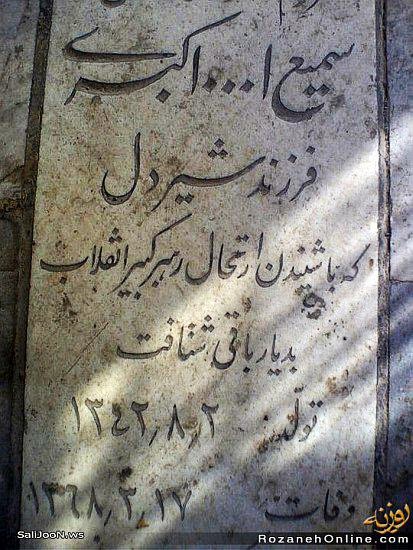 سمیع ا... اکبری
فرزند شیردل
که باشنیدن ارتحال رهبر کبیر انقلاب
بدیار باقی شتافت
تولد: ۱۳۴۲٫۸٫۲
وفات: ۱۳۶۸٫۳٫۱۷
SaliJooN.ws
روزنه
RozanehOnline.com